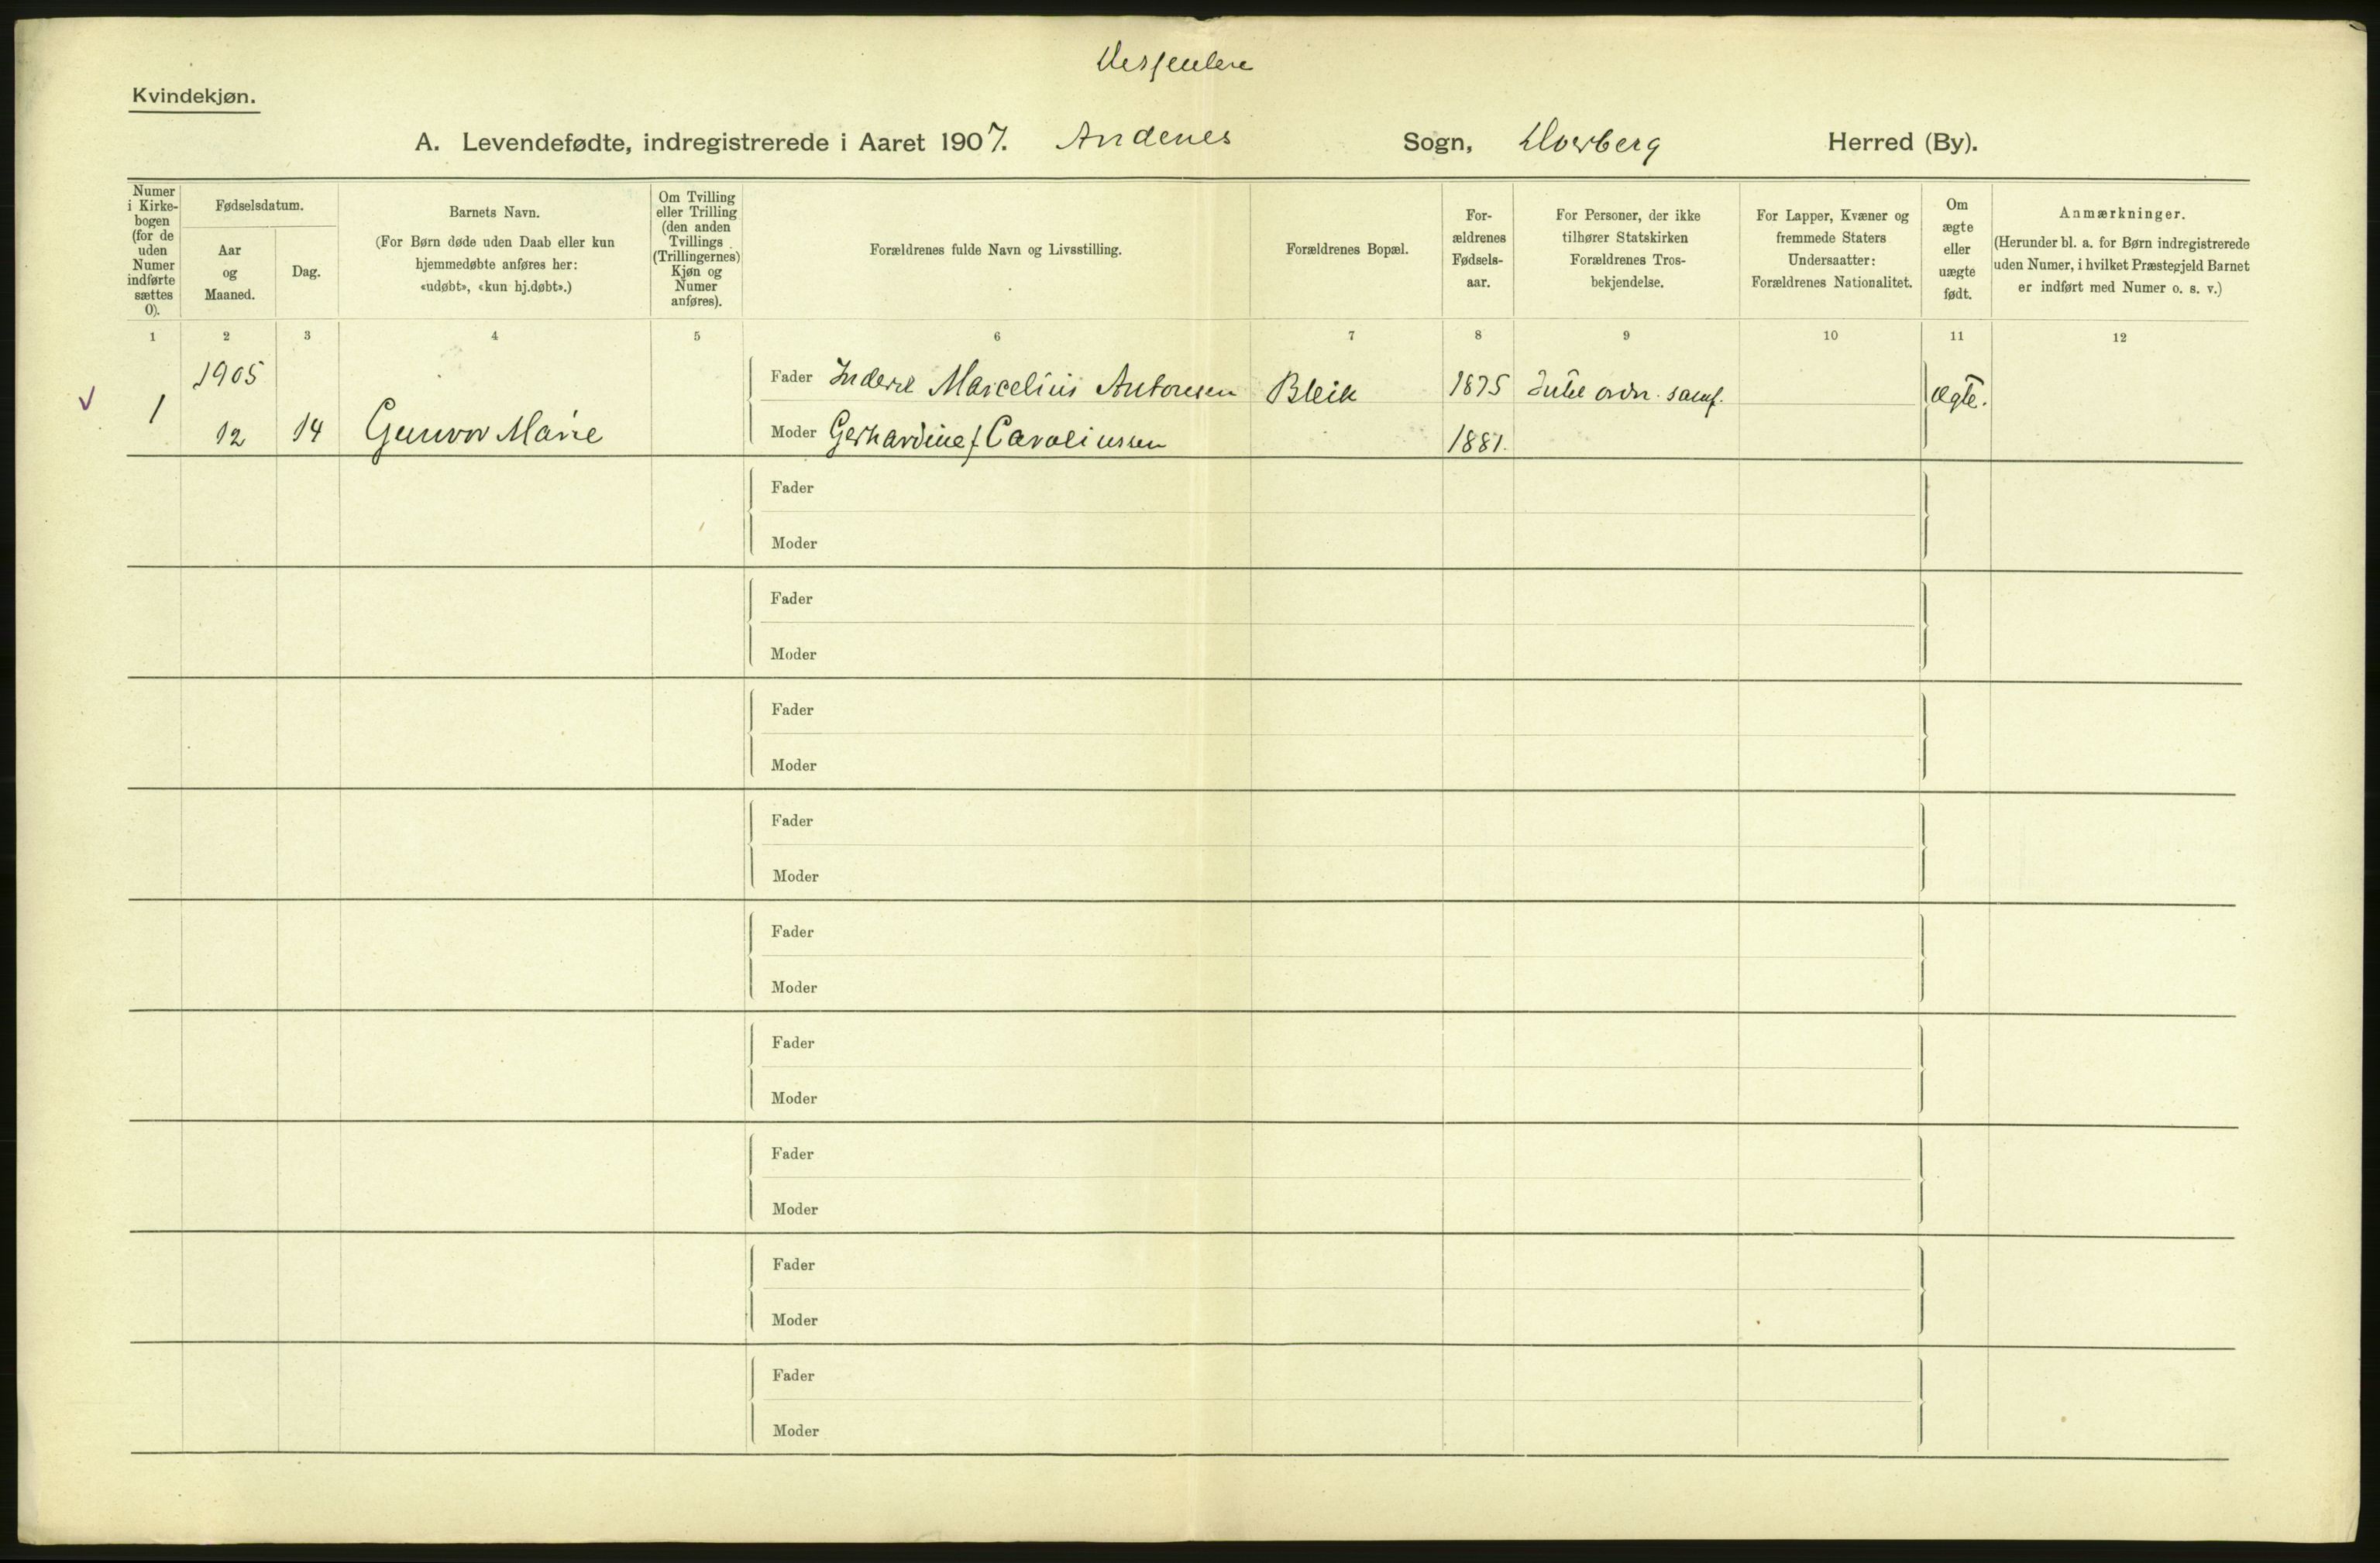 Kvindekjøn.
A. Levendefødte, indregistrerede i Aaret 1907. Andenes Sogn, Dverberg Herred (By).
Numer i Kirke-bogen (for de uden Numer indførte sættes 0).
Fødselsdatum.
Aar og Maaned.
Dag.
Barnets Navn.
(For Børn døde uden Daab eller kun
hjemmedøbte anføres her:
«udøbt», «kun hj.døbt».)
Om Tvilling
eller Trilling
(den anden
Tvillings
(Trillingernes)
Kjøn og
Numer
anføres).
Forældrenes fulde Navn og Livsstilling.
Forældrenes Bopæl.
For-
ældrenes
Fødsels-
aar.
For Personer, der ikke
tilhører Statskirken
Forældrenes Tros-
bekjendelse.
For Lapper, Kvæner og
fremmede Staters
Undersaatter:
Forældrenes Nationalitet.
Om
ægte
eller
uægte
født.
Anmærkninger.
(Herunder bl. a. for Børn indregistrerede
uden Numer, i hvilket Præstegjeld Barnet
er indført med Numer o. s. v.)
1 2 3 4 5 6 7 8 9 10 11 12
1905
Fader Marcelius Antonsen Bleik 1875 samf. ægte.
1
12 14 Gunvor Marie Moder Gerhardine f. Caroliussen 1881.
Fader
Moder
Fader
Moder
Fader
Moder
Fader
Moder
Fader
Moder
Fader
Moder
Fader
Moder
Fader
Moder
Fader
Moder